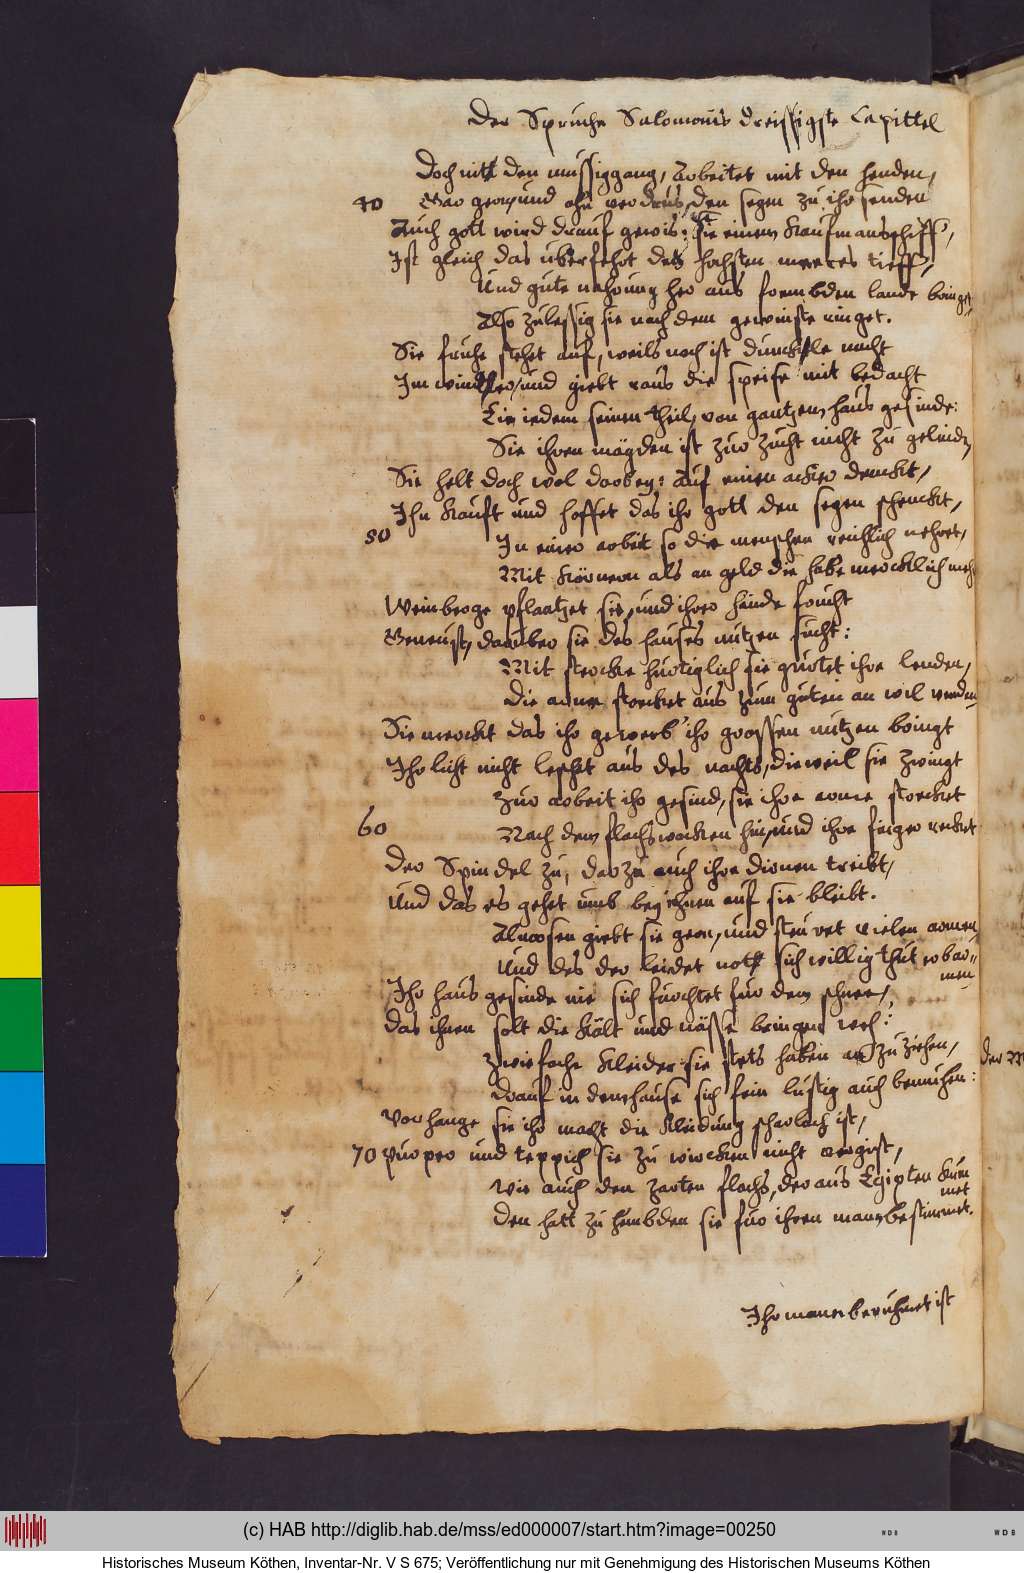 Der Spruche Salomonis dreissigste Capittel
Doch nitt den mussiggang, Arbeitet mit den henden,
40 Gar gern, und ohn verdrus, den segen zu ihr senden
Auch gott wird drauf gewis: Sie einem Kaufmansschiff,
Ist gleich das uberfehrt des hochsten meeres tieff,
Und gute nahrung her aus frembden lande bringet,
Also zulessig sie nach dem gewinste ringet.
Sie fruhe stehet auf, weils noch ist dunckle nacht
Im winter, und giebt raus die speise mit bedacht
Ein iedem seinen theil, von gantzem haus gesinde:
Sie ihren mägden ist zur zucht nicht zu gelinde,
Sie helt doch wol darbey: Auf einen acker denckt,
Ihn kauft und hoffet das ihr gott den segen schenckt,
50 In einer arbeit so die menschen reichlich nehret,
Mit körnern als an geld die habe mercklich meh
Weinberge pflantzet sie, und ihrer hände frucht
Geneust, daruber sie des hauses nutzen sucht:
Mit stercke hurtiglich sie gurtet ihre lenden,
Die arme strecket aus zum guten an wil wenden
Sie merckt das ihr gewerb' ihr grossen nutzen bringt
Ihr licht nicht leschet aus des nachts, dieweil sie zwingt
Zur arbeit ihr gesind, sie ihre arme strecket
60 Nach dem flachs wocken hin, und ihre finger recket
Der Spindel zu, darzu auch ihre dirnen treibt,
Und das es gehet umb bey ihnen auf sie bleibt.
Almosen giebt sie gern, und steuret vielen armen,
Und des der leidet noth sich willig thut erbar=
men
Ihr haus gesinde nie sich furchtet fur dem schnee,
Das ihnen solt die kält und nässe bringen weh:
Zwiefache kleider sie stets haben an zu ziehen,
Drauf in dem hause sich fein lustig auch bemuhen:
Vorhange sie ihr macht die kleidung scharlach ist,
70 Purper und teppich sie zu wircken nicht vergist,
Wie auch den zarten flachs, der aus Egipten kum
met
Den hatt zu hembden sie fur ihren man bestimmet.
Ihr man beruhmet ist
Der
(c) HAB http://diglib.hab.de/mss/ed000007/start.htm?image=00250
WDB
WDB
Historisches Museum Köthen, Inventar-Nr. V S 675; Veröffentlichung nur mit Genehmigung des Historischen Museums Köthen